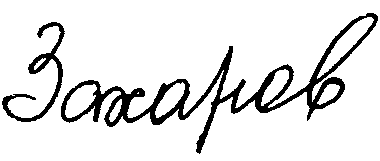 Захаров